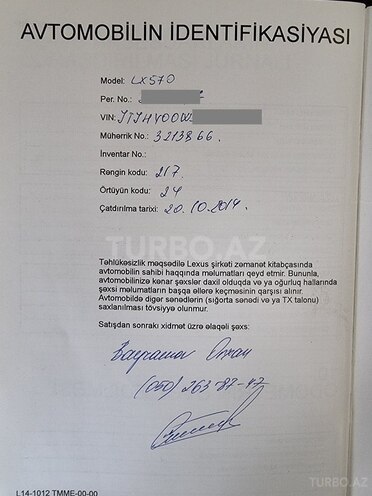 AVTOMOBİLİN İDENTİFİKASİYASI
Model: LX570
Per. No.:
VIN: JTJHY00W
Mühərrik No.: 3213866.
İnventar No.:
Rəngin kodu: 217.
Örtüyün kodu: 24
Çatdırılma tarixi: 20.10.2014.
TURBO.AZ
Təhlükəsizlik məqsədilə Lexus şirkəti zəmanət kitabçasında
avtomobilin sahibi haqqında məlumatları qeyd etmir. Bununla,
avtomobilinizə kənar şəxslər daxil olduqda və ya oğurluq hallarında
şəxsi məlumatların başqa əllərə keçməsinin qarşısı alınır.
Avtomobildə digər sənədlərin (sığorta sənədi və ya TX talonu)
saxlanılması tövsiyyə olunmur.
Satışdan sonrakı xidmət üzrə əlaqəli şəxs:
Bayramov Orxan
(050) 263-87-42
L14-1012 TMME-00-00
TURBO.AZ